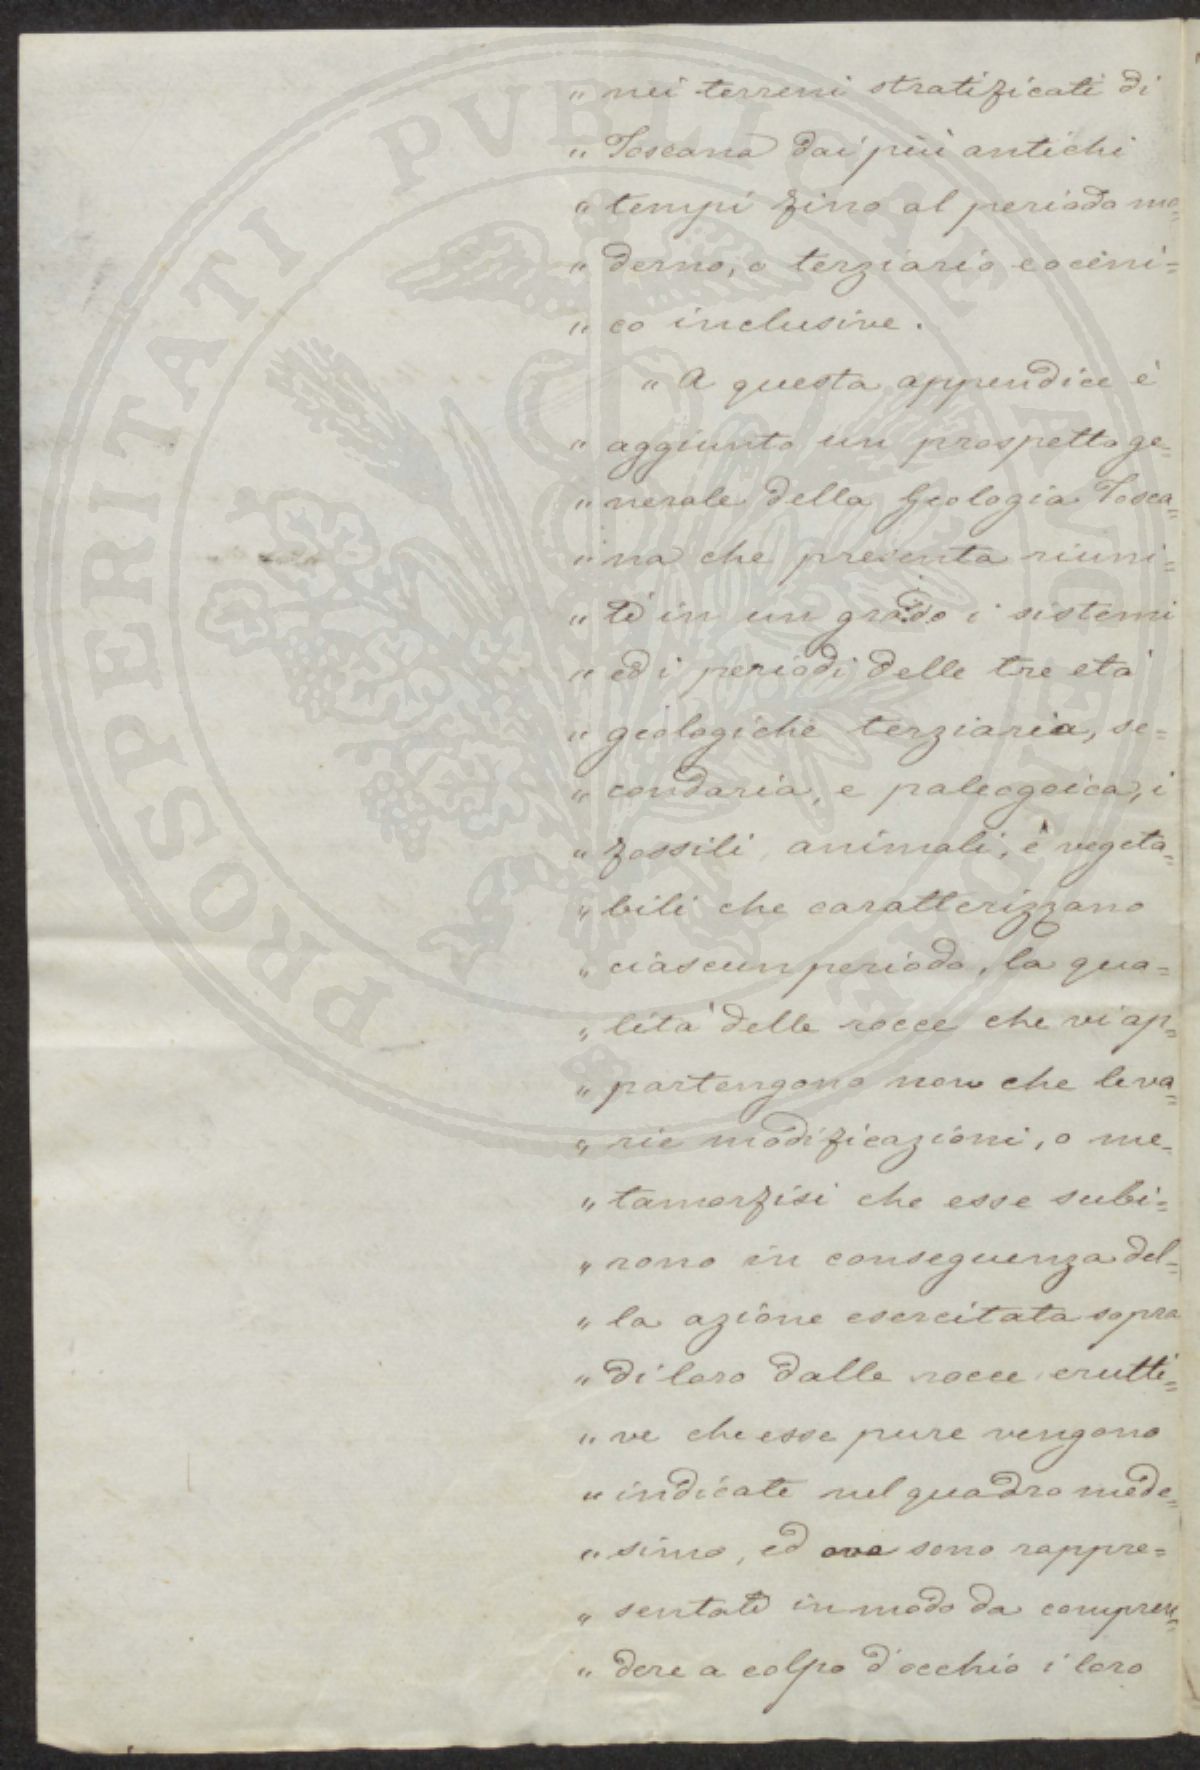 „ nei terreni stratificati di
„ Toscana dai più antichi
„ tempi fino al periodo mo=
„ derno, o terziario eoceni=
„ co inclusive.
„ A questa appendice è
„ aggiunto un prospetto ge=
„ nerale della Geologia Tosca=
„ na che presenta riuni=
„ ti in un grado i sistemi
„ ed i periodi delle tre età
„ geologiche terziaria, se=
„ condaria, e paleozoica, i
„ fossili animali, e vegeta=
„ bili che caratterizzano
„ ciascun periodo, la qua=
„ lità delle rocce che vi ap=
„ partengono non che le va=
„ rie modificazioni, o me=
„ tamorfisi che esse subi=
„ rono in conseguenza del=
„ la azione esercitata sopra
„ di loro dalle rocce erutti=
„ ve che esse pure vengono
„ indicate nel quadro mede=
„ simo, ed ove sono rappre=
„ sentati in modo da compren=
„ dere a colpo d'occhio i loro
PROSPERITATI PVBLICAE AVGENDAE